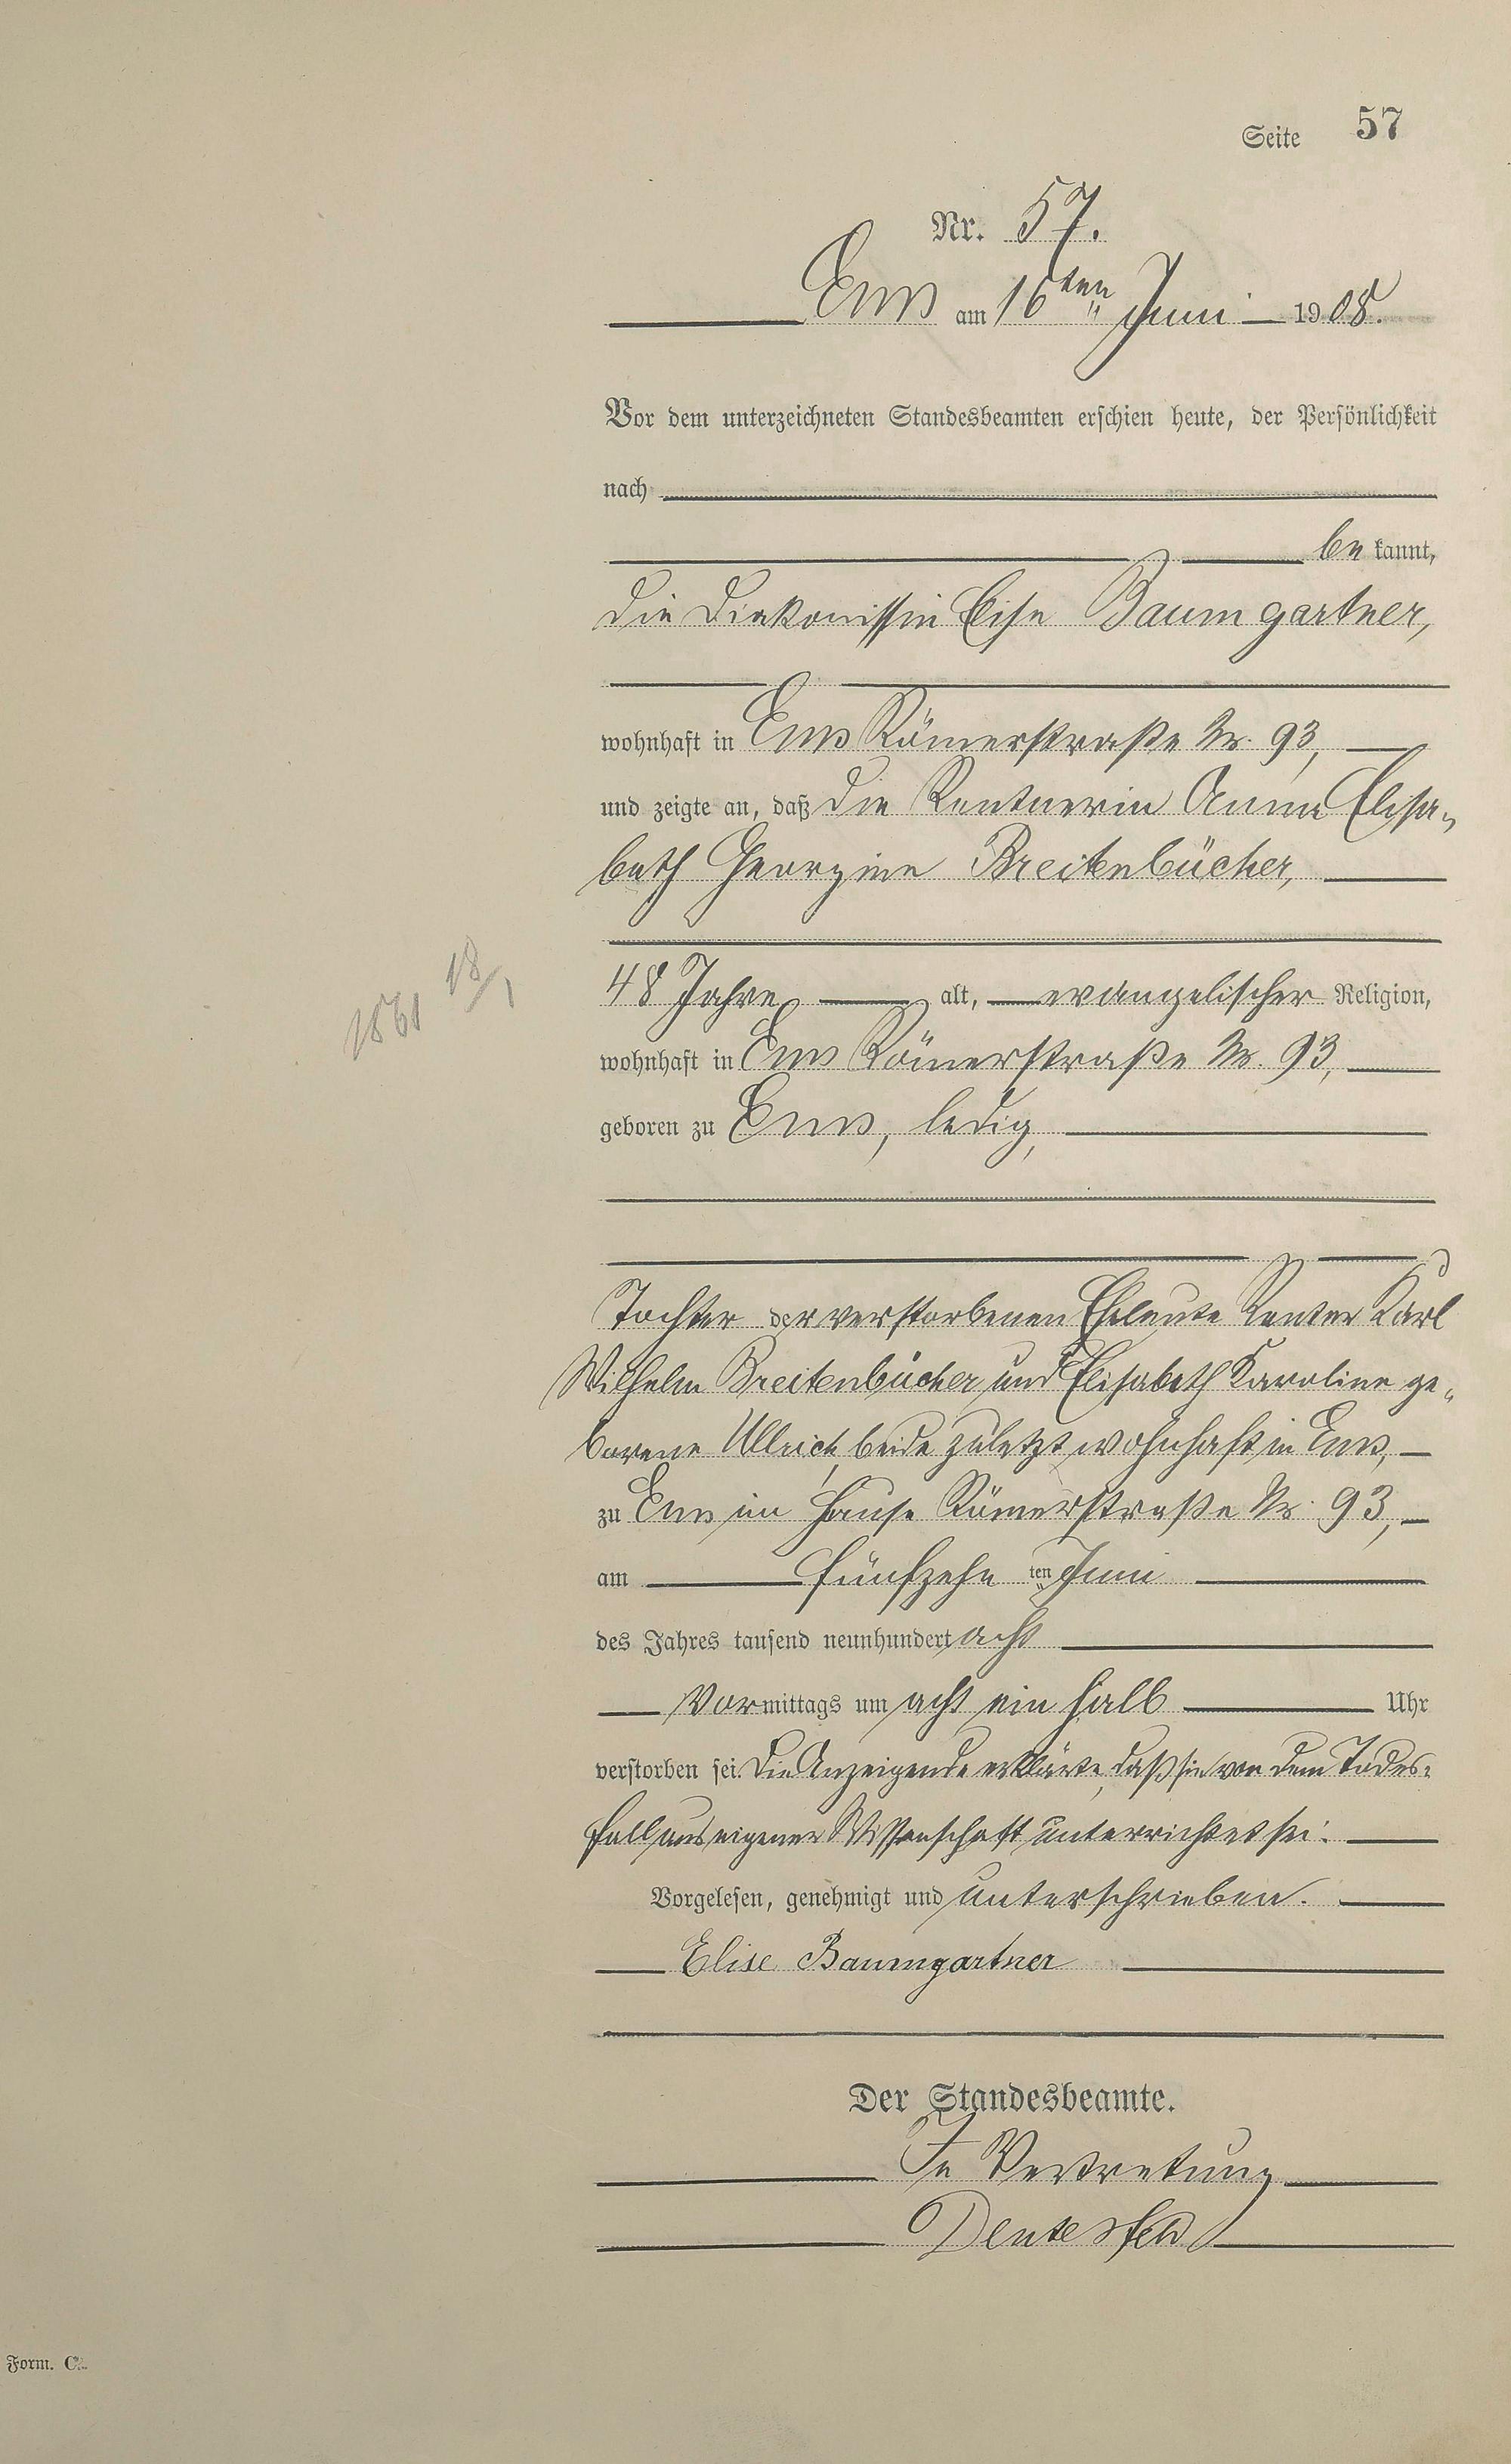 Seite 57
Nr. 57.
Ems am 16ten Juni 1908.
Vor dem unterzeichneten Standesbeamten erschien heute, der Persönlichkeit
nach
be kannt,
die Diakonissin Elise Baumgartner,
wohnhaft in Ems Römerstraße Nr. 93,
und zeigte an, daß die Rentnerin Anna Elisa-
beth Georgine Breitenbücher,
48 Jahre alt, evangelischer Religion,
18/1
1861
wohnhaft in Ems Römerstraße Nr. 93,
geboren zu Ems, ledig,
Tochter der verstorbenen Eheleute Rentner Karl
Wilhelm Breitenbücher und Elisabeth Karoline ge-
borene Ullrich, beide zuletzt wohnhaft in Ems,
zu Ems im Hause Römerstraße Nr. 93,
am fünfzehn ten Juni
des Jahres tausend neunhundert acht
Vormittags um acht ein halb Uhr
verstorben sei. Die Anzeigende erklärte, daß sie von dem Todes-
fall aus eigener Wissenschaft unterrichtet sei.
Vorgelesen, genehmigt und unterschrieben.
Elise Baumgartner
Der Standesbeamte.
In Vertretung
Form. C.